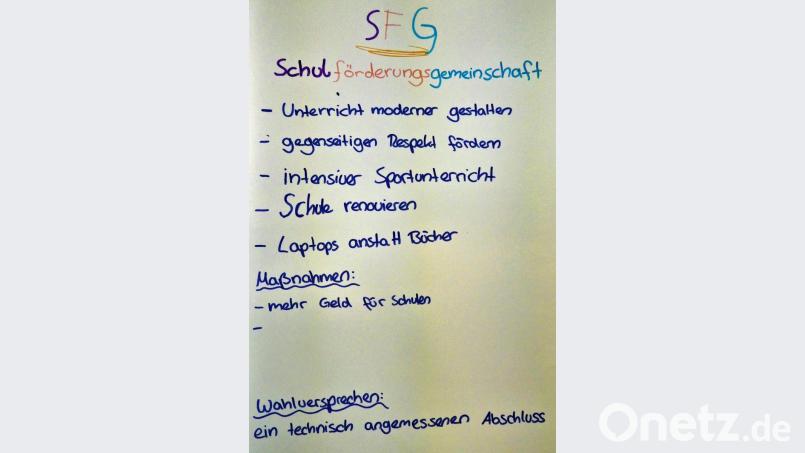 SFG
Schulförderungsgemeinschaft
- Unterricht moderner gestalten
- gegenseitigen Respekt fördern
- intensiver Sportunterricht
- Schule renovieren
- Laptops anstatt Bücher
Maßnahmen:
- mehr Geld für Schulen
-
Wahlversprechen:
ein technisch angemessenen Abschluss
Onetz.de